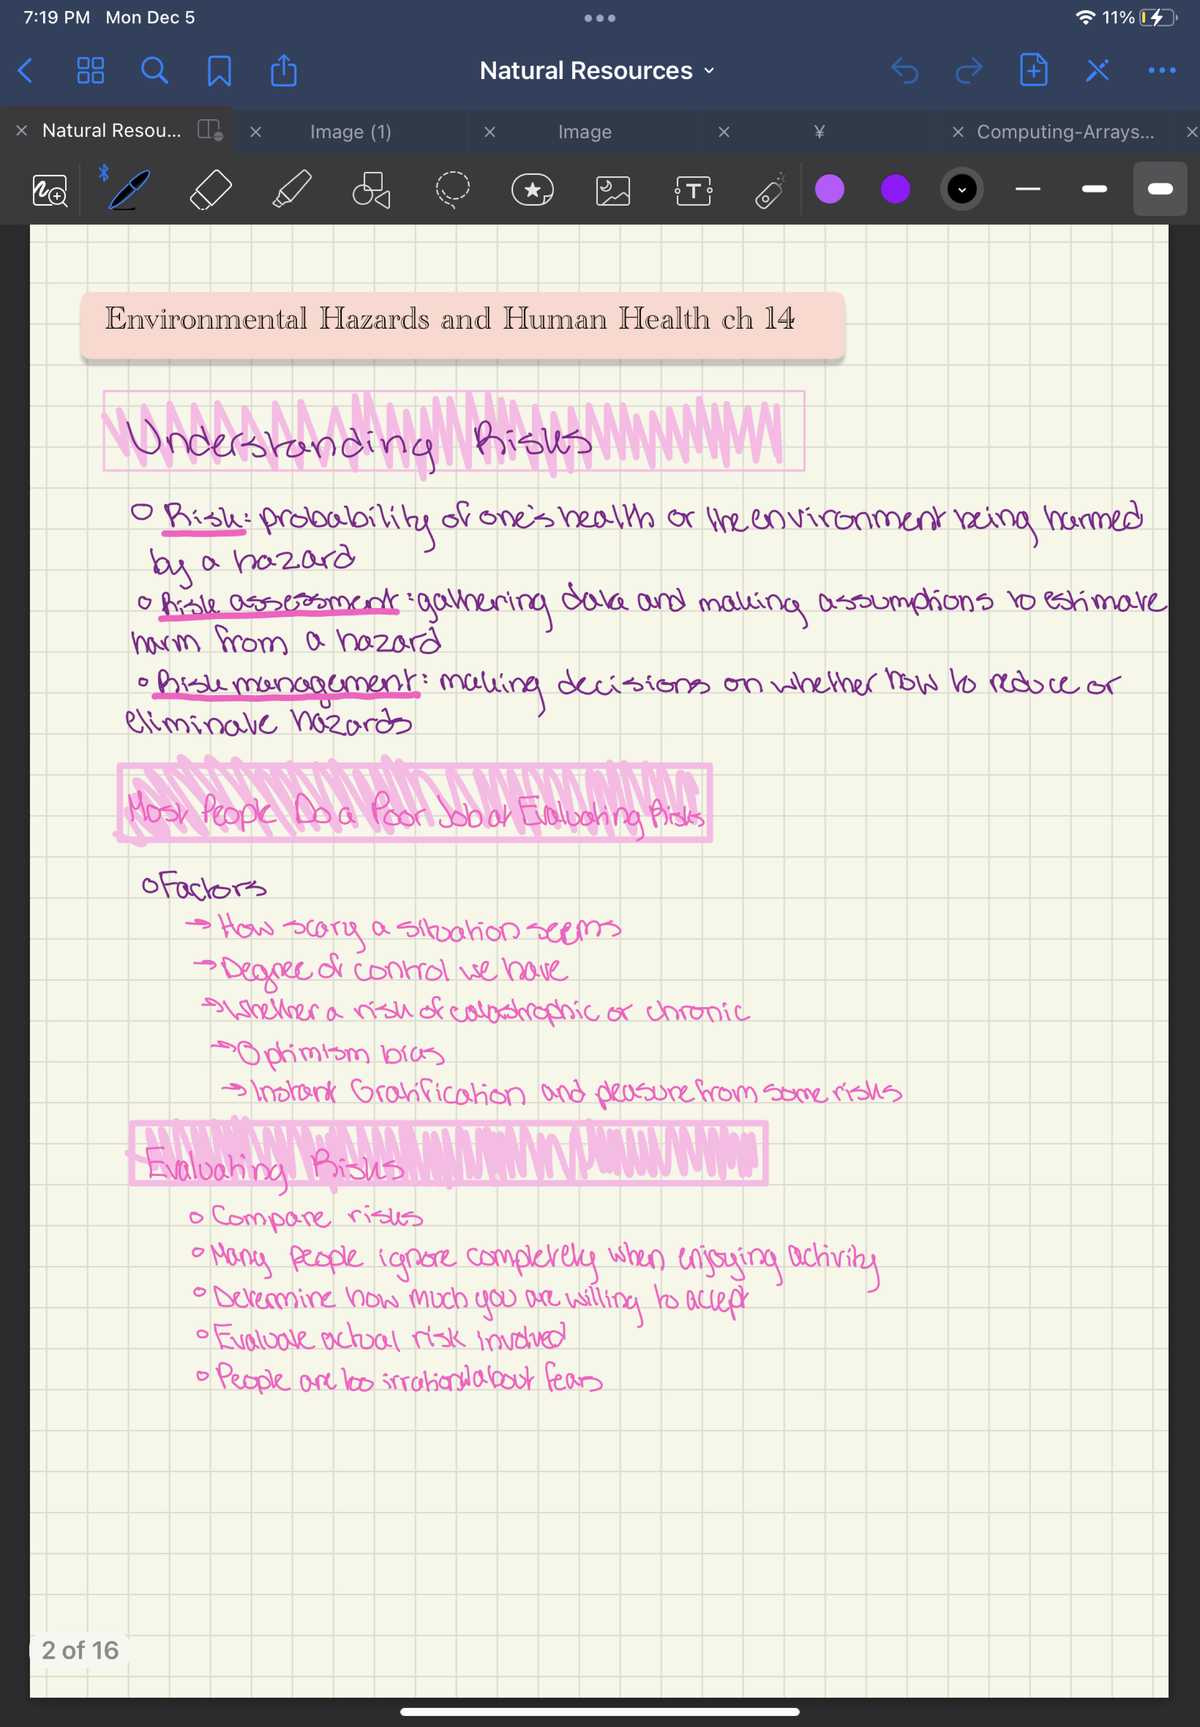 7:19 PM Mon Dec 5
11%
Natural Resources
Natural Resou...
Image (1)
Image
¥
Computing-Arrays...
T
Environmental Hazards and Human Health ch 14
Understanding Risks
Risk: probability of one's health or the environment being harmed
by a hazard
Risk assessment: gathering data and making assumptions to estimate
harm from a hazard
Risk management: making decisions on whether how to reduce or
eliminate hazards
Most People Do a Poor Job at Evaluating Risks
Factors
→ How scary a situation seems
→ Degree of control we have
→ Whether a risk of catastrophic or chronic
→ Optimism bias
→ Instant Gratification and peasure from some risks
Evaluating Risks
Compare risks
Many people ignore completely when enjoying activity
Determine how much you are willing to accept
Evaluate actual risk involved
People are too irrational about fears
2 of 16